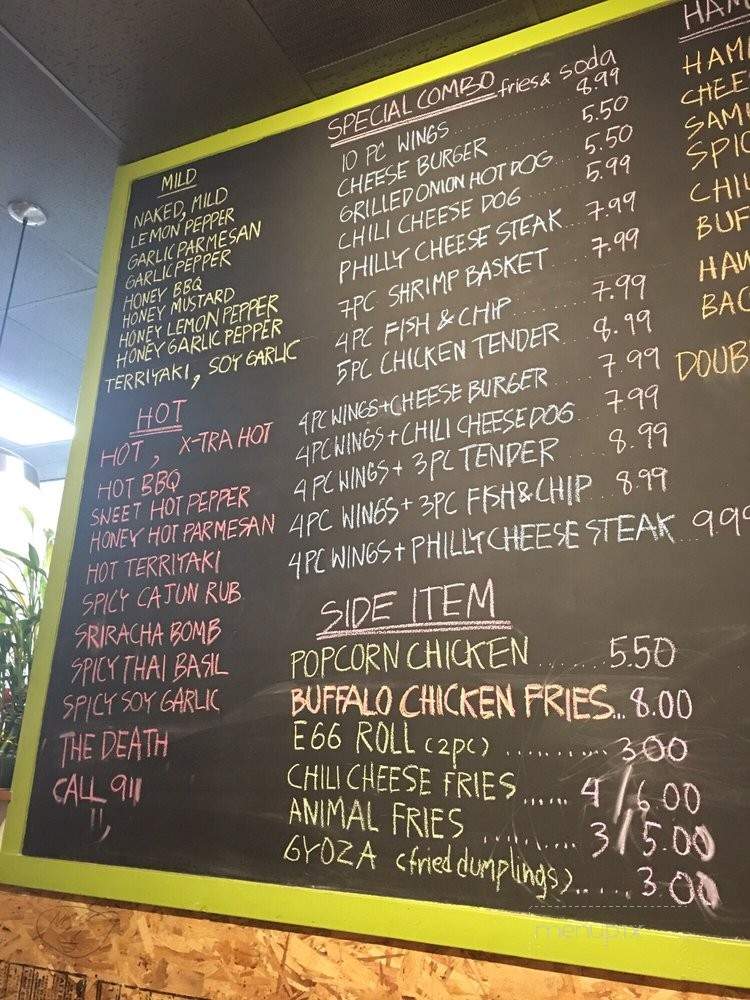 MILD
NAKED, MILD
LEMON PEPPER
GARLIC PARMESAN
GARLIC PEPPER
HONEY BBQ
HONEY MUSTARD
HONEY LEMON PEPPER
HONEY GARLIC PEPPER
TERRIYAKI, SOY GARLIC
HOT
HOT, X-TRA HOT
HOT BBQ
SWEET HOT PEPPER
HONEY HOT PARMESAN
HOT TERRIYAKI
SPICY CAJUN RUB
SRIRACHA BOMB
SPICY THAI BASIL
SPICY SOY GARLIC
THE DEATH
CALL 911
!!,
SPECIAL COMBO fries & soda
10 PC WINGS 8.99
CHEESE BURGER 5.50
GRILLED ONION HOT DOG 5.50
CHILI CHEESE DOG 5.99
PHILLY CHEESE STEAK 7.99
7PC SHRIMP BASKET 7.99
4PC FISH & CHIP 7.99
5PC CHICKEN TENDER 8.99
4PC WINGS + CHEESE BURGER 7.99
4PC WINGS + CHILI CHEESE DOG 7.99
4PC WINGS + 3PC TENDER 8.99
4PC WINGS + 3PC FISH & CHIP 8.99
4PC WINGS + PHILLY CHEESE STEAK 9.99
SIDE ITEM
POPCORN CHICKEN ....... 5.50
BUFFALO CHICKEN FRIES... 8.00
EGG ROLL (2pc) .......... 3.00
CHILI CHEESE FRIES ...... 4/6.00
ANIMAL FRIES .......... 3/5.00
GYOZA (fried dumplings)..... 3.00
HAM
HAM
CHEE
SAM
SPIC
CHIL
BUF
HAW
BAC
DOUB
menupix